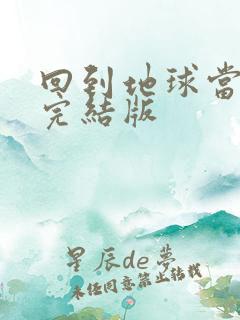 回到地球當
完結版
星辰de夢
未经同意禁止转载